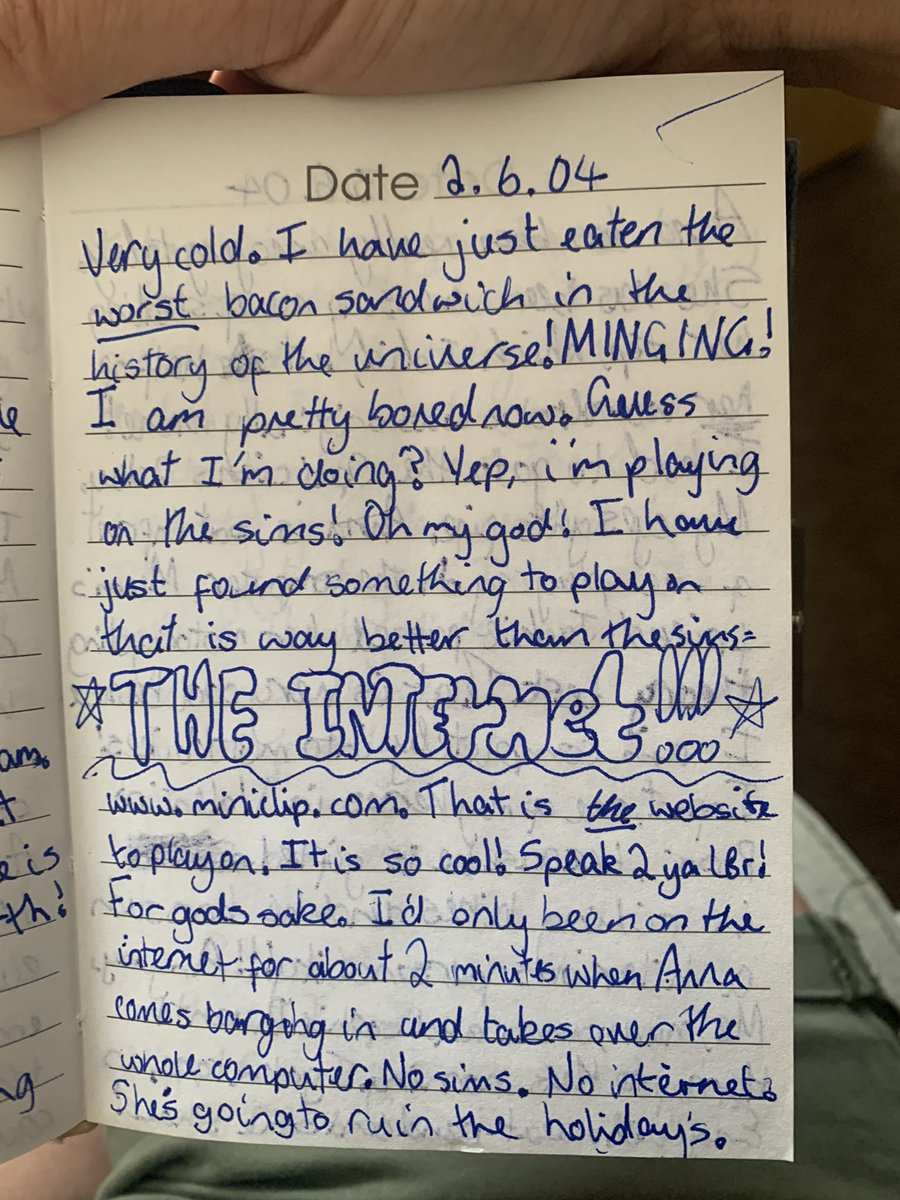 Date 2.6.04
Very cold. I have just eaten the
worst bacon sandwich in the
history of the universe! MINGING!
I am pretty bored now. Guess
what I'm doing? Yep, i'm playing
on the sims! Oh my god! I have
just found something to play on
that is way better than the sims=
THE INTErneT!!!
www.miniclip.com. That is the website
to play on! It is so cool! Speak 2 ya l8r!
For gods sake. I'd only been on the
internet for about 2 minutes when Anna
comes barging in and takes over the
whole computer. No sims. No internet.
She's going to ruin the holiday's.
am.
is
th!